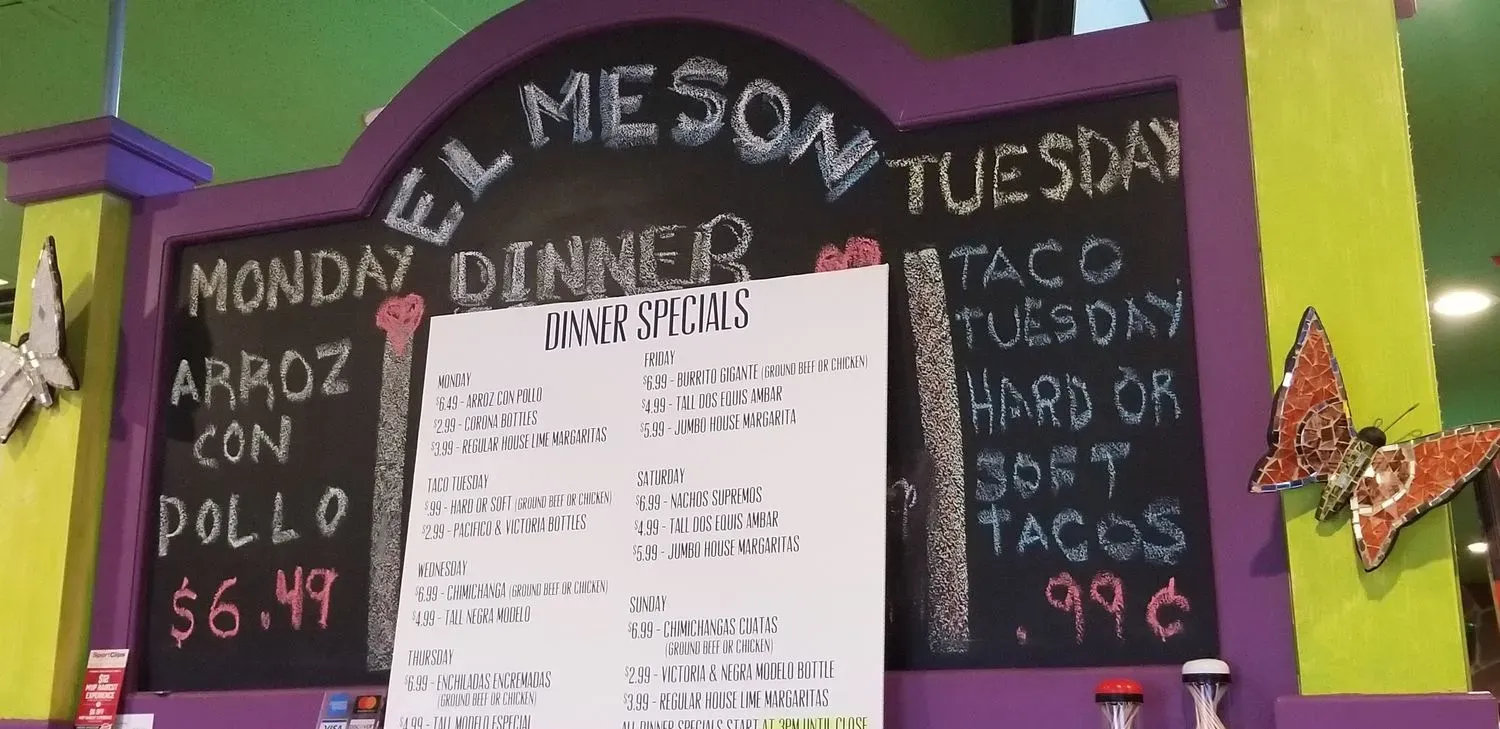 EL MESON
DINNER
MONDAY
ARROZ
CON
POLLO
$6.49
TUESDAY
TACO
TUESDAY
HARD OR
SOFT
TACOS
.99¢
DINNER SPECIALS
MONDAY
$6.49 - ARROZ CON POLLO
$2.99 - CORONA BOTTLES
$3.99 - REGULAR HOUSE LIME MARGARITAS
TACO TUESDAY
$.99 - HARD OR SOFT (GROUND BEEF OR CHICKEN)
$2.99 - PACIFICO & VICTORIA BOTTLES
WEDNESDAY
$6.99 - CHIMICHANGA (GROUND BEEF OR CHICKEN)
$4.99 - TALL NEGRA MODELO
THURSDAY
$6.99 - ENCHILADAS ENCREMADAS
(GROUND BEEF OR CHICKEN)
$4.99 - TALL MODELO ESPECIAL
FRIDAY
$6.99 - BURRITO GIGANTE (GROUND BEEF OR CHICKEN)
$4.99 - TALL DOS EQUIS AMBAR
$5.99 - JUMBO HOUSE MARGARITA
SATURDAY
$6.99 - NACHOS SUPREMOS
$4.99 - TALL DOS EQUIS AMBAR
$5.99 - JUMBO HOUSE MARGARITAS
SUNDAY
$6.99 - CHIMICHANGAS CUATAS
(GROUND BEEF OR CHICKEN)
$2.99 - VICTORIA & NEGRA MODELO BOTTLE
$3.99 - REGULAR HOUSE LIME MARGARITAS
ALL DINNER SPECIALS START AT 3PM UNTIL CLOSE
SportClips
$12
MVP HAIRCUT
EXPERIENCE
VISA